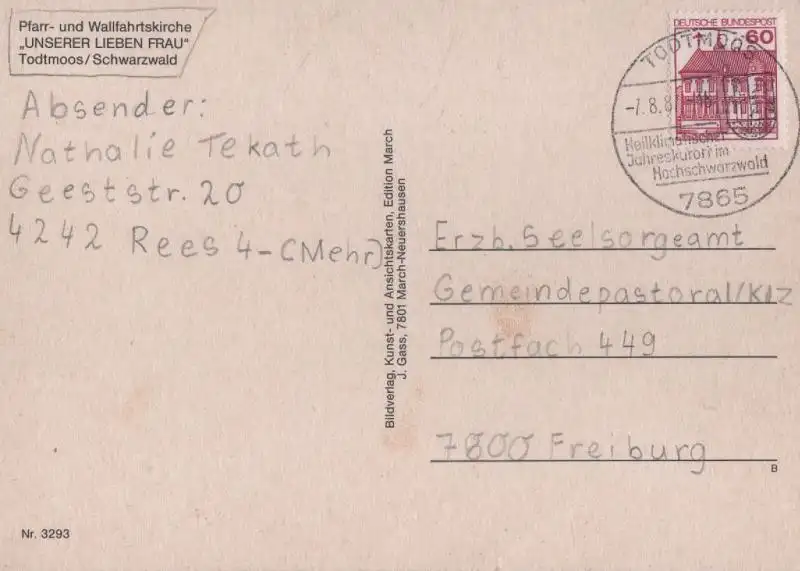 Pfarr- und Wallfahrtskirche
„UNSERER LIEBEN FRAU"
Todtmoos/Schwarzwald
Absender:
Nathalie Tekath
Geeststr. 20
4242 Rees 4-(Mehr)
Nr. 3293
Bildverlag, Kunst- und Ansichtskarten, Edition March
J. Gass, 7801 March-Neuershausen
DEUTSCHE BUNDESPOST
60
TODTMOOS
-7.8.8
Heilklimatischer
Jahreskurort im
Hochschwarzwald
7865
Erzb. Seelsorgeamt
Gemeindepastoral/KIZ
Postfach 449
7800 Freiburg
B